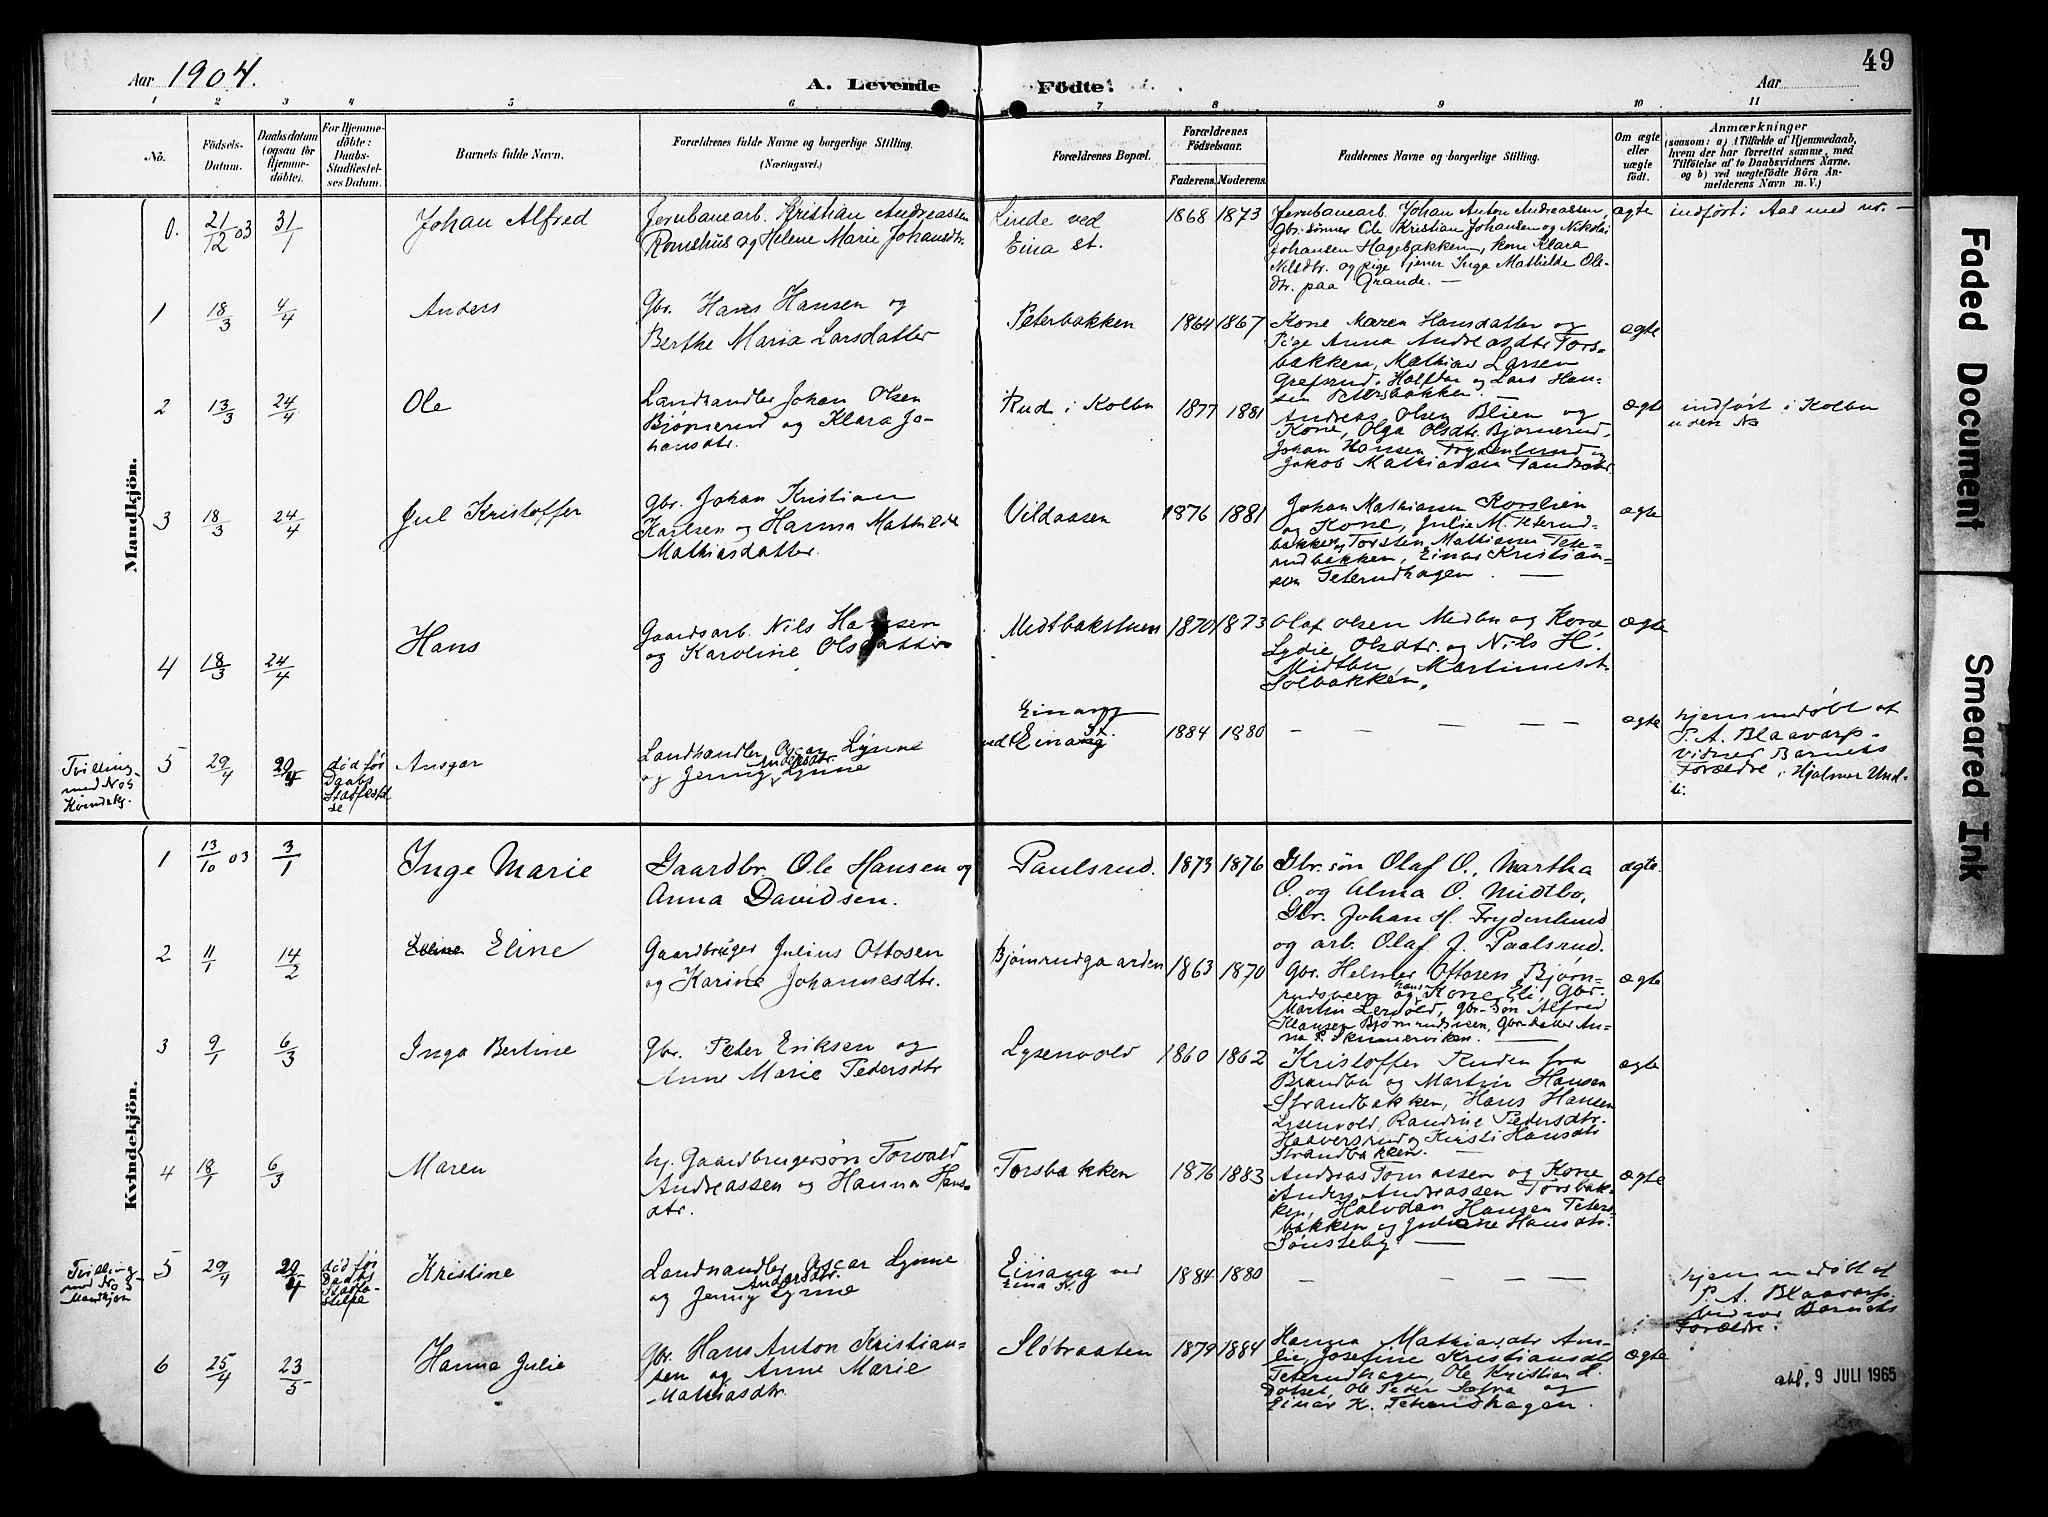 49
Aar 1904.
A. Levende Födte.
Aar
1 2 3 4 5 6 7 8 9 10 11
No.
Födsels-
Datum.
Daabsdatum
(ogsaa for
Hjemme-
döbte).
For Hjemme-
döbte:
Daabs-
Stadfæstel-
ses Datum.
Barnets fulde Navn.
Forældrenes fulde Navne og borgerlige Stilling.
(Næringsvei.)
Forældrenes Bopæl.
Forældrenes
Födselsaar.
Faderens. Moderens.
Faddernes Navne og borgerlige Stilling.
Om ægte
eller
uægte
födt.
Anmærkninger
(saasom: a) i Tilfælde af Hjemmedaab,
hvem der har forrettet samme, med
Tilföielse af to Daabsvidners Navne,
og b) ved uægtefödte Börn An-
melderens Navn m. V.)
Mandkjön.
0. 21/12 03 31/1 Johan Alfred
Jernbanearb. Kristian Andreassen
Romshus og Helene Marie Johansdtr.
Linde ved
Eina st.
1868 1873
Jernbanearb. Johan Anton Andreassen,
Gbr. sönner Ole Kristian Johansen og Nikolai
Johansen Hagebakken, kone Klara
Nilsdtr. og pige tjener Inga Mathilde Ols-
dtr. paa Grande. —
ægte
indført i Aas med nr. —
1 18/3 4/4 Anders
Gbr. Hans Hansen og
Berthe Maria Larsdatter
Peterbakken
1864 1867
Kone Maren Hansdatter og
Pige Anna Andreasdtr Tors-
bakken, Mathias Larsen
Grefsrud, Halfdan og Lars Han-
sen Petersbakken. —
ægte
2 13/3 24/4 Ole
Landhandler Johan Olsen
Bjørnerud og Klara Jo-
hansdtr.
Rud i Kolbu
1877 1881
Andreas Olsen Blien og
Kone, Olga Olsdtr. Bjørnerud,
Johan Hansen Frydenlund og
Jakob Mathiadsen
ægte
indført i Kolbu
uden No
3 18/3 24/4 Jul Kristoffer
Gbr. Johan Kristian
Karlsen og Hanna Mathilde
Mathiasdatter.
Vildaasen
1876 1881
Johan Mathiasen Korslien
og Kone, Julie M. Peterud-
bakken, Torsten Mathiesen Pete-
rudbakken, Einar Kristian-
sen Peterudhagen. —
ægte
4 18/3 24/4 Hans
Gaardsarb. Nils Hansen
og Karoline Olsdatter
Midtbakstuen
1870 1873
Olaf Olsen Medbu og Kone
Lydie Olsdtr. og Nils H.
Midtbu, Martinius
Solbakken.
ægte
Tvilling
med No 5
Kvindekj.
5 29/4 29/4 død før
Daabs
Stadfæstel
se
Ansgar
Landhandler Oscar Lynne
og Jenny Andersdtr. Lynne
Einang
ved Eina St.
1884 1880
— — — — —
ægte
hjemmedøbt af
P. A. Blaavarp
vidner Barnets
Forældre, Hjalmar Und-
li.
Kvindekjön.
1 13/10 03 3/1 Inge Marie
Gaardbr. Ole Hansen og
Anna Davidsen.
Paulsrud.
1873 1876
Gbr. søn Olaf O., Martha
O. og Alma O. Midtbo,
Gbr. Johan H. Frydenlund
og arb. Olaf J. Paalsrud.
ægte.
2 11/1 14/2 Eline
Gaardbruger Julius Ottosen
og Karine Johannesdtr.
Bjørnrudgaarden
1863 1870
Gbr. Helmer Ottosen Bjørn-
rudsveen og hans Kone Eli, Gbr.
Martin Lervold, gbr-søn Alfred
Klausen Bjørnrudsveen, Gbr.datter An-
na P. Skinnerviken. —
ægte
3 9/1 6/3 Inga Bertine
Gbr. Peter Eriksen og
Anne Marie Pedersdtr
Lysenvold
1860 1862
Kristoffer Ruden fra
Brandbu og Martin Hansen
Strandbakken, Hans Hansen
Lysenvold, Randine Pedersdtr.
Haaversrud og Kirsti Hansdtr
Strandbakken. —
ægte
4 18/1 6/3 Maren
hj. Gaardbrugersøn Torvald
Andreassen og Hanna Hans-
dtr.
Torsbakken
1876 1883
Andreas Tomassen og Kone
Anders Andreassen Torsbak-
ken, Halvdan Hansen Peters-
bakken og Juliane Hansdtr.
Sønsteby. —
ægte
Tvilling
med No 5
Mandkjøn
5 29/4 29/4 død før
Daabs
Stadfæ-
stelse
Kristine
Landhandler Oscar Lynne
og Jenny Andersdtr. Lynne
Einang ved
Eina St.
1884 1880
— — — —
hjemmedøbt af
P. A. Blaavarp.
Vidner Barnets
Forældre.
6 25/4 23/5 Hanna Julie
Gbr. Hans Anton Kristian-
sen og Anne Marie
Mathiasdtr.
Slöbraaten
1879 1884
Hanna Mathiasdtr An-
lie, Josefine Kristiansdtr
Peterudhagen, Ole Kristian L.
Dølset, Ole Peder Sofra og
Einar K. Peterudhagen.
ægte
abl. 9 JULI 1965
Faded Document
Smeared Ink